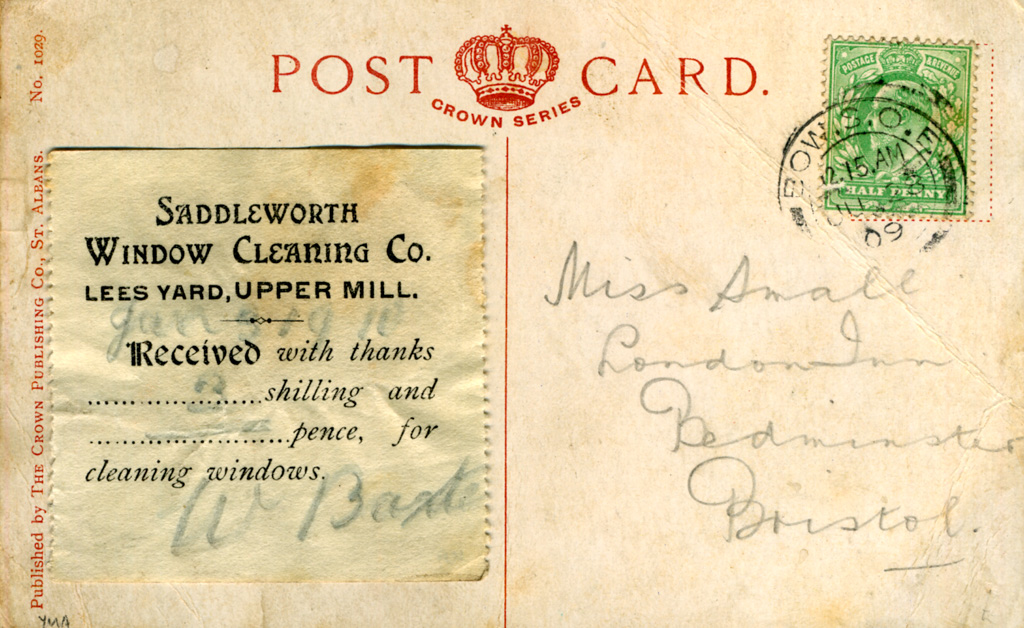 POST CARD.
CROWN SERIES
No. 1029.
Published by THE CROWN PUBLISHING CO., ST. ALBANS.
POSTAGE REVENUE
HALF PENNY
BOW S.O.E
12.15.AM
09
SADDLEWORTH
WINDOW CLEANING CO.
LEES YARD, UPPER MILL.
Received with thanks
3 shilling and
pence, for
cleaning windows.
W Baxt
Miss Small
London Inn
Bedminster
Bristol.
YMA